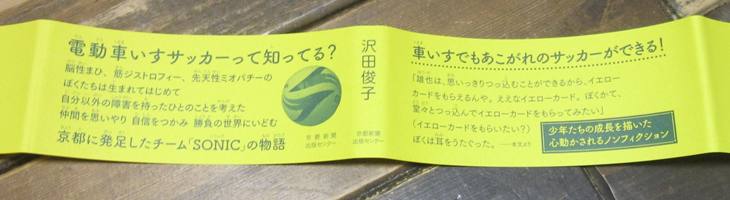 電動車いすサッカーって知ってる?
脳性まひ、筋ジストロフィー、先天性ミオパチーの
ぼくたちは生まれてはじめて
自分以外の障害を持ったひとのことを考えた
仲間を思いやり 自信をつかみ 勝負の世界にいどむ
京都に発足したチーム「SONIC」の物語
京都新聞
出版センター
沢田俊子
京都新聞
出版センター
車いすでもあこがれのサッカーができる!
「雄也は、思いっきりつっ込むことができるから、イエロー
カードをもらえるんや。ええなイエローカード。ぼくかて、
堂々とつっ込んでイエローカードをもらってみたい」
(イエローカードをもらいたい?)
ぼくは耳をうたぐった。 ——本文より
少年たちの成長を描いた
心動かされるノンフィクション